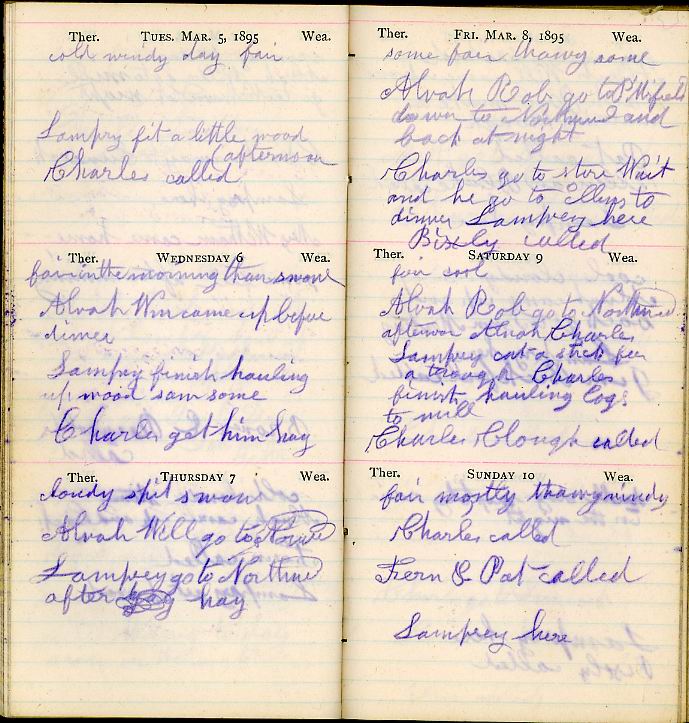 Ther. TUES. MAR. 5, 1895 Wea.
cold windy day fair
Lamprey fit a little wood
(afternoon
Charles called
Ther. WEDNESDAY 6 Wea.
fair in the morning than snow
Alvah Wm came up before
dinner
Lamprey finish hauling
up wood saw some
Charles get him hay
Ther. THURSDAY 7 Wea.
cloudy spit snow
Alvah Will go to
Lamprey go to Northwd
after hay
Ther. FRI. MAR. 8, 1895 Wea.
some fair thawy some
Alvah Rob go to Pittsfield
down to Northwd and
back at night
Charles go to store Wait
and he go to Ellens to
dinner Lamprey here
Bixly called
Ther. SATURDAY 9 Wea.
fair cool
Alvah Rob go to Northwd
afternoon Alvah Charles
Lamprey cut a stick for
a trough Charles
finish hauling logs
to mill
Charles Clough called
Ther. SUNDAY 10 Wea.
fair mostly thawy windy
Charles called
Fern & Pat called
Lamprey here